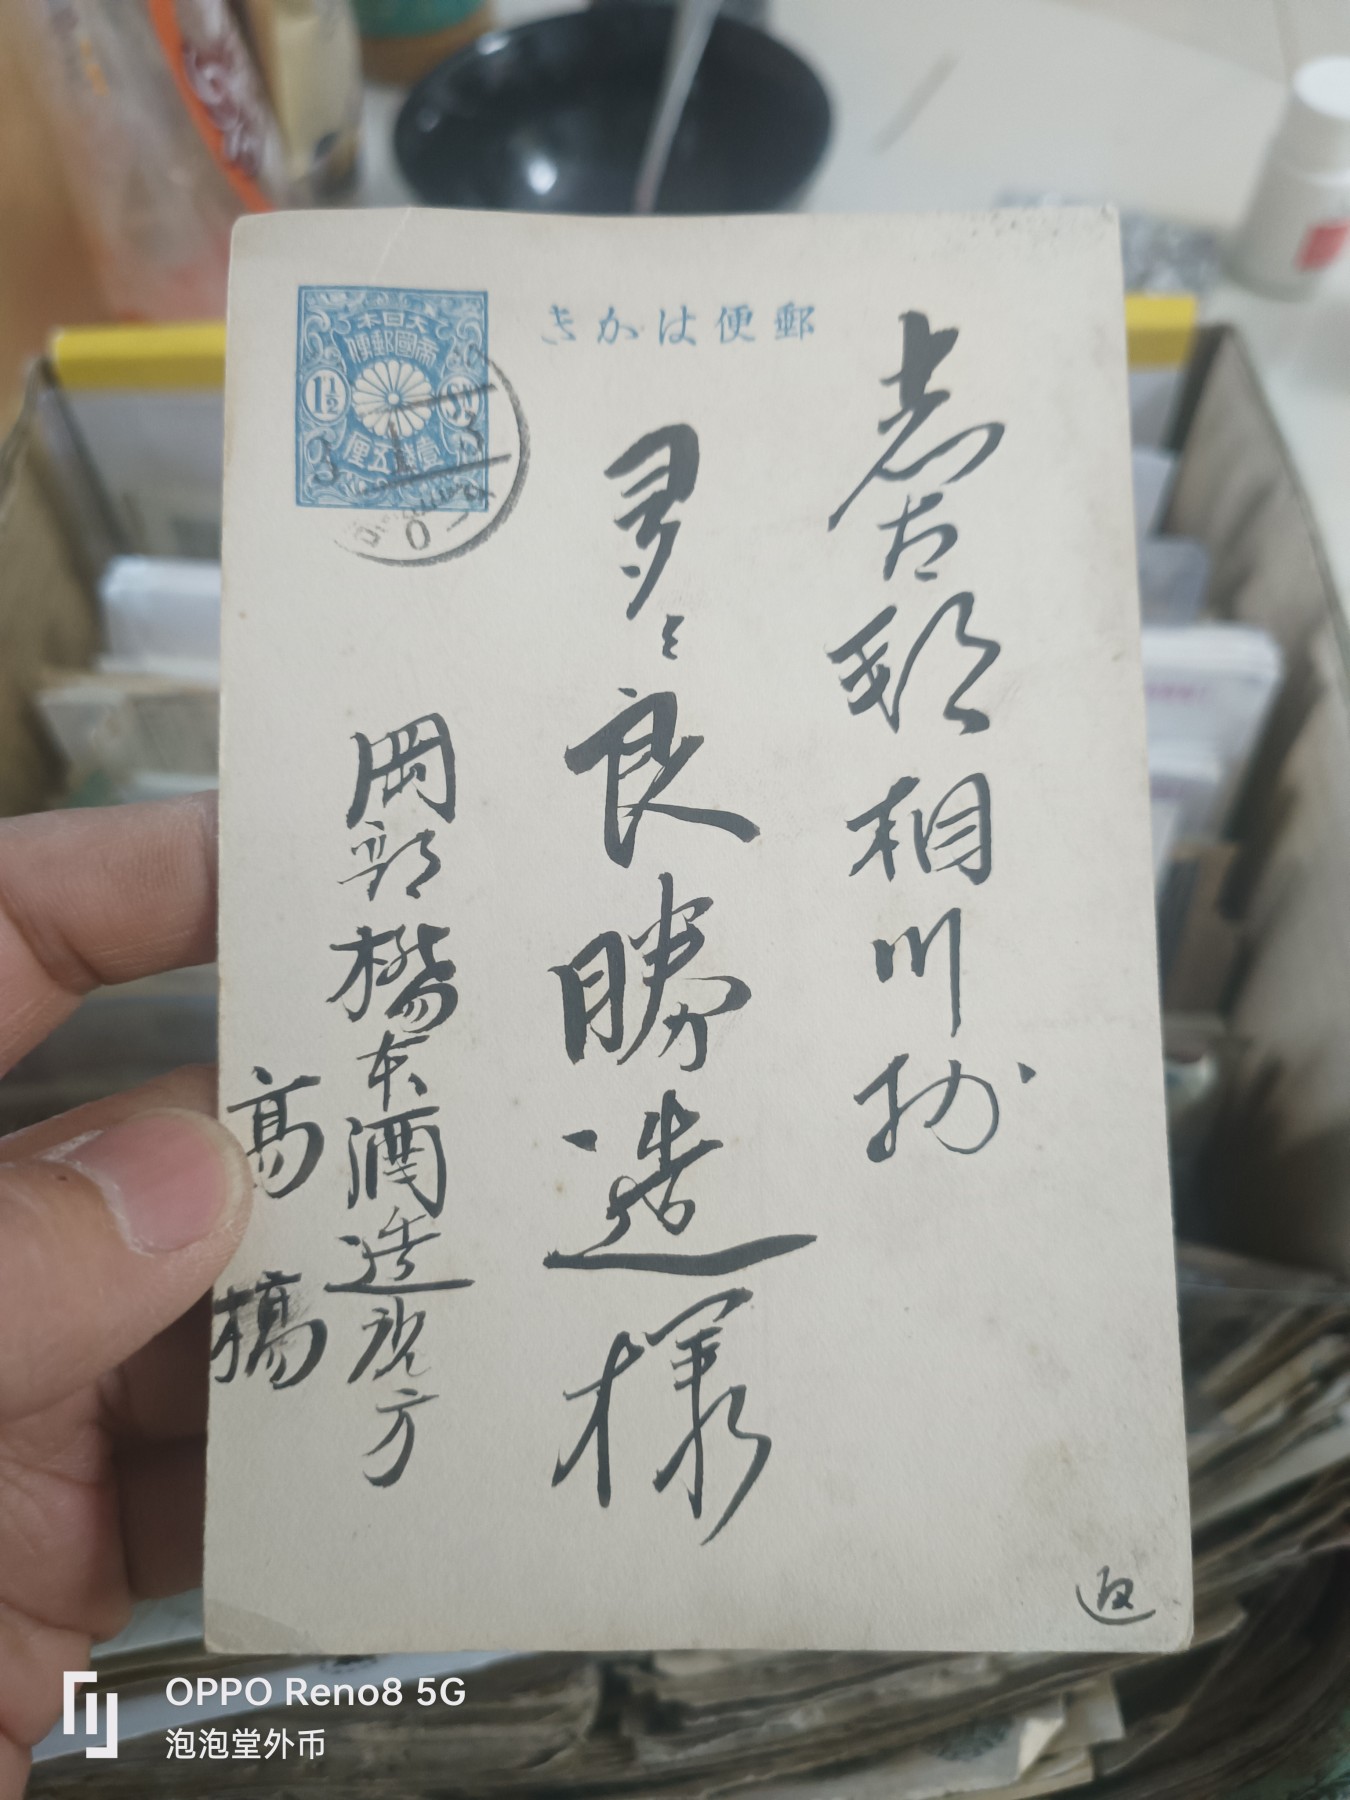 郵便はかき
大日本
帝國郵便
1½ Sn
壹錢五厘
志太郡相川村
多々良勝造様
岡部橋本酒造
方
高橋
返
OPPO Reno8 5G
泡泡堂外币